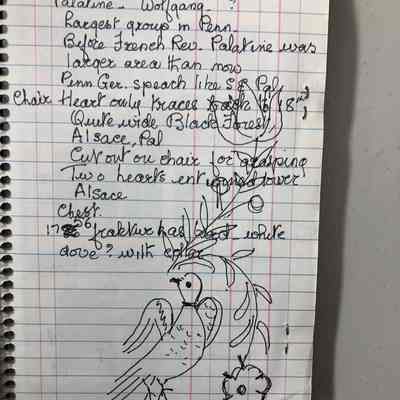 Palatine - Wolfgang - ?
Largest group in Penn.
Before French Rev. Palatine was
larger area than now
Penn Ger. speach like S.E. Pal.
Chair Heart only traces back to 18th
Quite wide Black Forest,
Alsace, Pal
Cut out on chair for grasping
Two hearts entwined
Alsace
Chest.
fraktur has white
dove? with collar